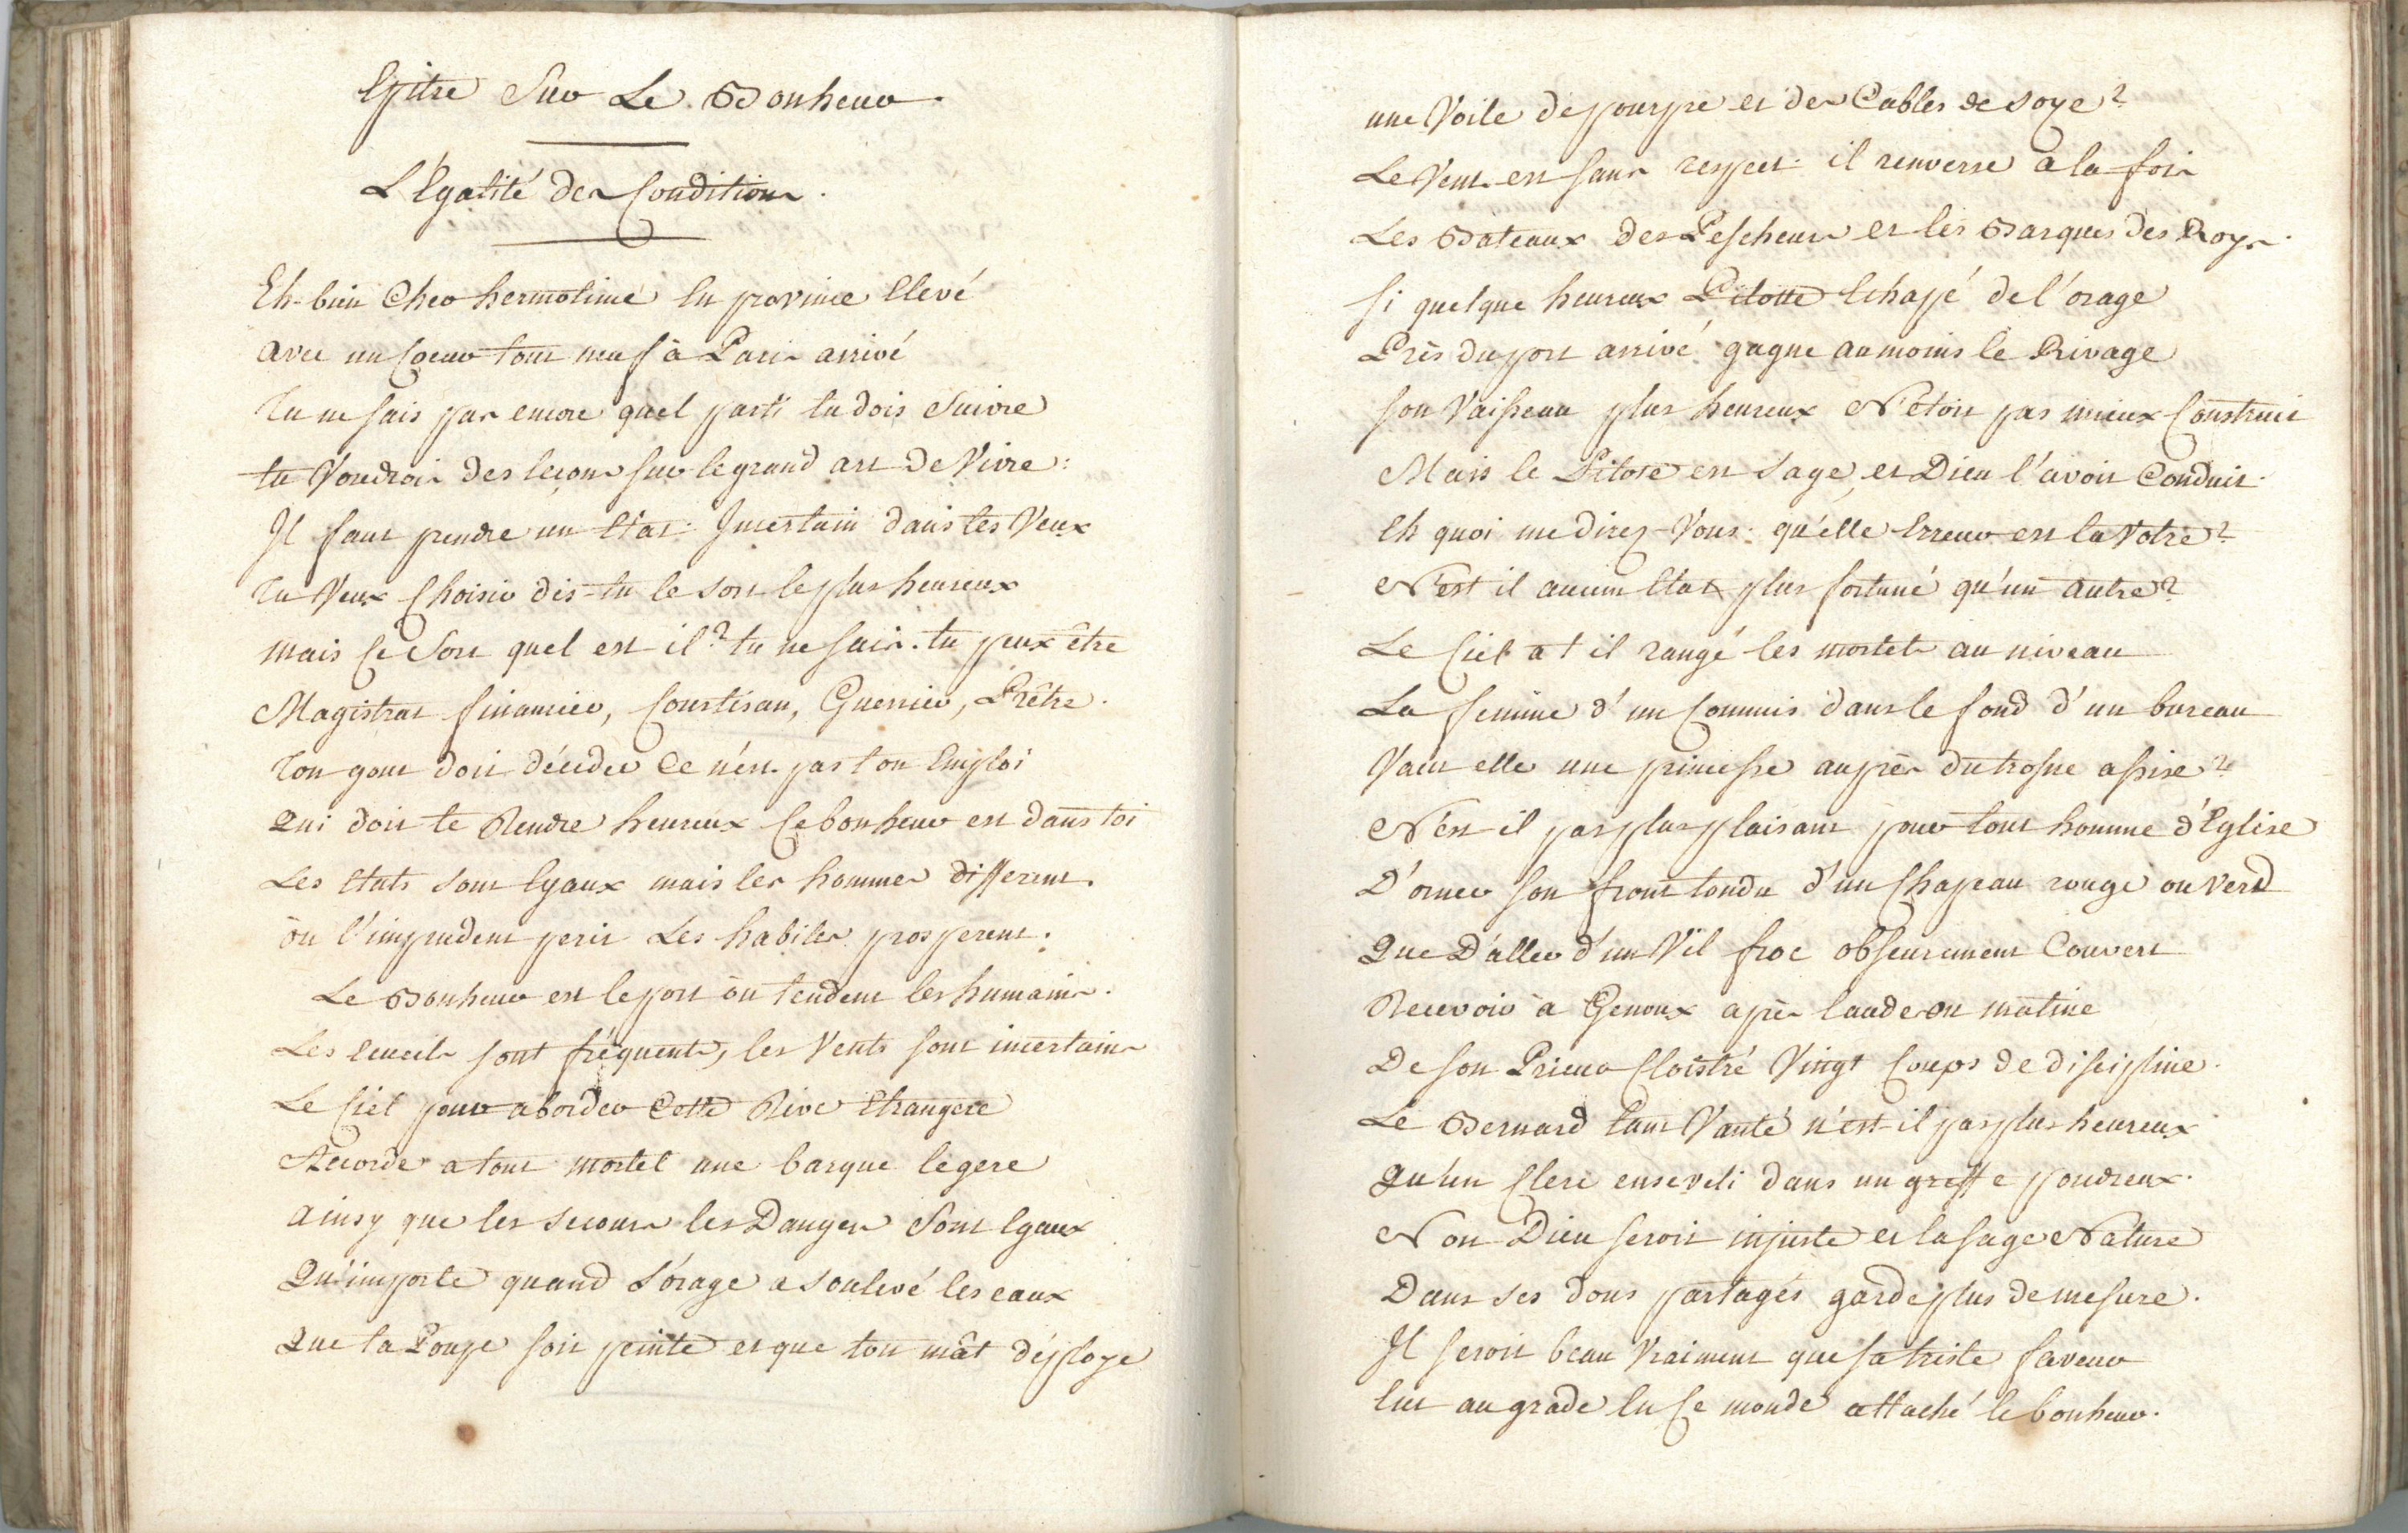 Epitre Sur Le Bonheur.
L'Egalité des Conditions.
Eh-bien Cher hermotime En province Elevé
avec un Coeur tout neuf à Paris arrivé
Tu ne sais pas encore quel parti tu dois Suivre
tu Voudrois des leçons sur le grand art de Vivre:
Il faut prendre un Etat. Incertain dans tes Veux
Tu Veux Choisir dis-tu le sort le plus heureux
mais Ce Sort quel est il? tu ne sais. tu peux être
Magistrat financier, Courtisan, Guerrier, Prêtre.
Ton gout doit décider Ce n'est pas ton Emploi
Qui doit te Rendre heureux Ce bonheur est dans toi
Les Etats sont Egaux mais les hommes different.
òu l'imprudent perit Les habiles prosperent.
Le Bonheur est le port òu tendent les humains.
Les Ecueils sont fréquents, les Vents sont incertains
Le Ciel pour aborder Cette Rive Etrangere
Accorde a tout mortel une barque legere
ainsy que les secours les Dangers Sont Egaux
Qu'importe quand l'órage a soulevé les eaux
Que ta Poupe soit peinte et que ton mât déploye
une Voile de pourpre et des Cables de soye?
Le Vent est sans respect. il renverse a la fois
Les Bateaux des Pescheurs et les Barques des Roys.
Si quelque heureux Pilotte Echapé de l'orage
Près du port arrivé gagne au moins le Rivage
Son Vaisseau plus heureux N'étoit pas mieux Construit
Mais le Pilote est sage, et Dieu l'avoit Conduit.
Eh quoi me direz-Vous: qu'elle Erreur est la Votre?
N'est il aucun Etat plus fortuné qu'un autre?
Le Ciel a t il rangé les mortels au niveau
La femme d'un Commis dans le fond d'un bureau
Vaut elle une princesse auprès du trosne assise?
N'est-il pas plus plaisant pour tout homme d'Eglise
D'orner son front tondu d'un Chapeau rouge ou Verd
Que D'aller d'un Vil froc obscurement Couvert
Recevoir à Genoux après laude ou matine
De son Prieur Cloistré Vingt Coups de discipline.
Le Bernard tant Vanté n'est-il pas plus heureux
Qu'un Clerc enseveli dans un greffe poudreux.
Non Dieu seroit injuste et la sage Nature
Dans ses dons partagés garde plus de mesure.
Il seroit beau Vraiment que sa triste faveur
Eut au grade En Ce monde attaché le bonheur.